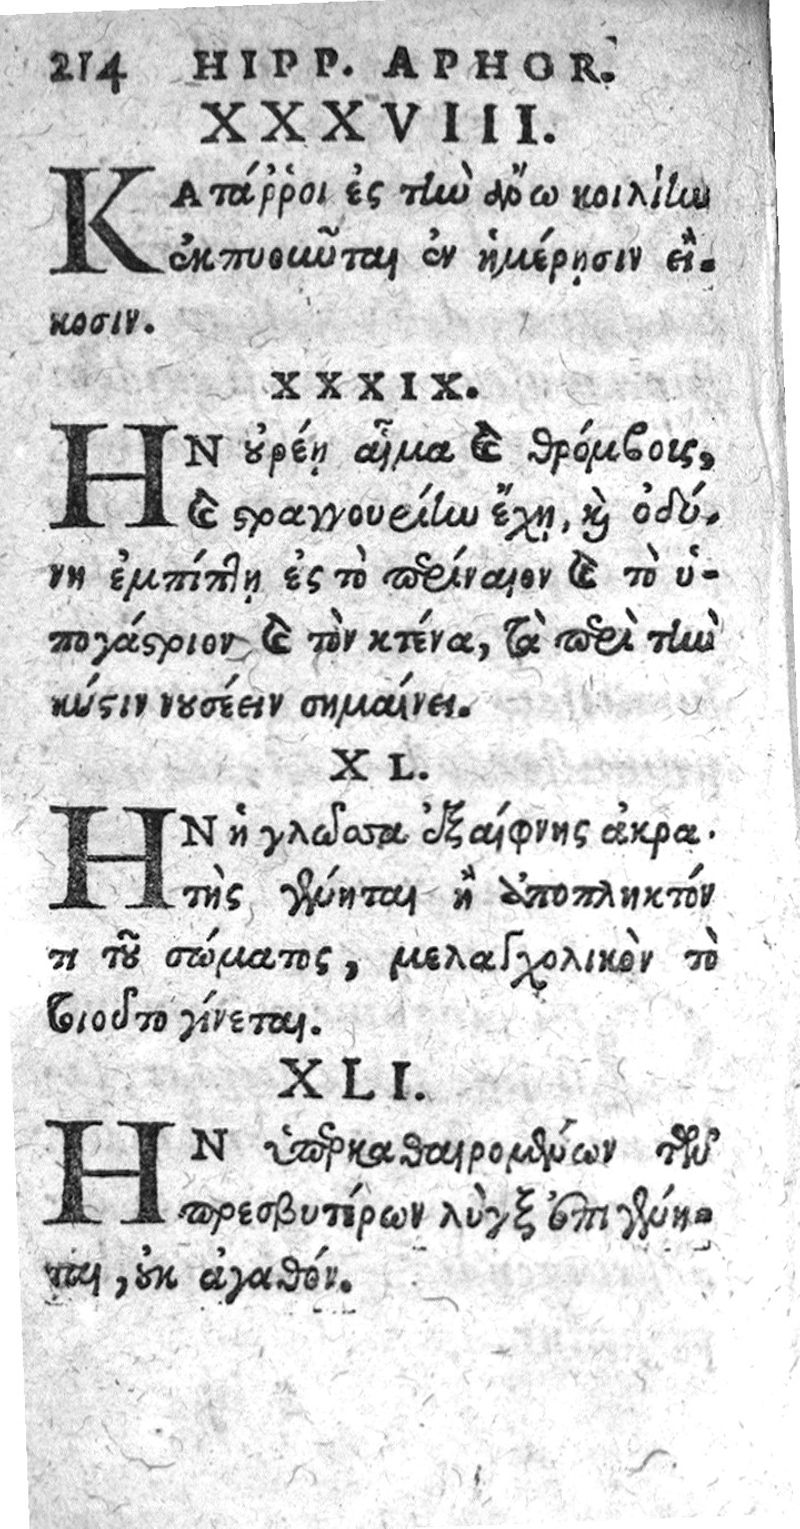 214 HIPP. APHOR.
XXXVIII.
ΚΑτάῤῥοι ἐς τὴν ἄνω κοιλίην
ἐκπυοῦνται ἐν ἡμέρῃσιν εἴ-
κοσιν.
XXXIX.
ΗΝ οὐρέῃ αἷμα καὶ θρόμβοις,
καὶ στραγγουρίην ἔχῃ, καὶ ὀδύ-
νη ἐμπίπλῃ ἐς τὸ περίναιον καὶ τὸ ὑ-
πογάστριον καὶ τὸν κτένα, τὰ περὶ τὴν
κύστιν νουσέειν σημαίνει.
XL.
ΗΝ ἡ γλῶσσα ἐξαίφνης ἀκρα-
τὴς γένηται ἢ ἀπόπληκτόν
τι τοῦ σώματος, μελαγχολικὸν τὸ
τοιοῦτο γίνεται.
XLI.
ΗΝ ὑπερκαθαιρομένων τῶν
πρεσβυτέρων λὺγξ ἐπιγένη-
ται, οὐκ ἀγαθόν.